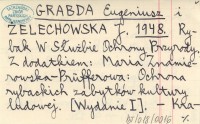 GRABDA Eugeniusz i
ŻELECHOWSKA J. 1948. Ry-
bak W Służbie Ochrony Przyrody.
Z dodatkiem: Maria Znamie-
rowska-Prüfferowa: Ochrona
rybackich zabytków kultury
ludowej. [Wydanie I]. Kra-